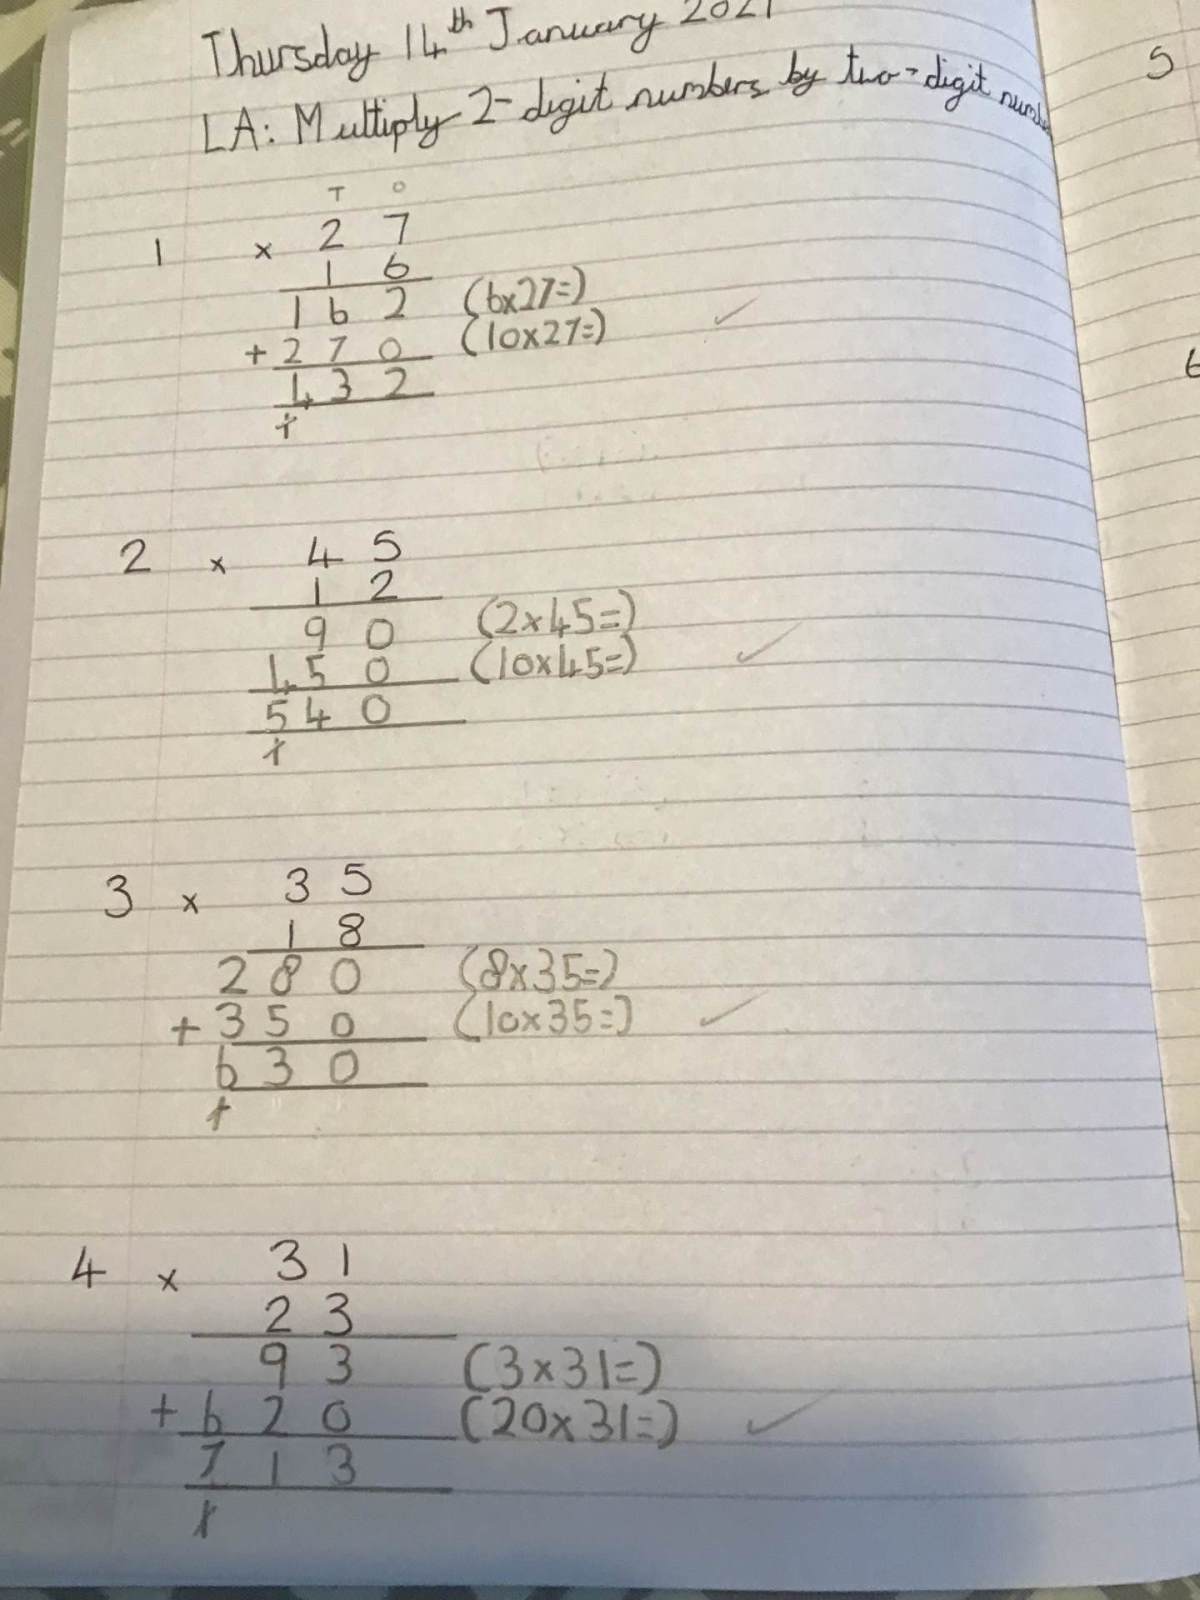 Thursday 14th January 2021
LA: Multiply 2-digit numbers by two-digit
T O
1 × 2 7
1 6
1 6 2 (6×27=)
+ 2 7 0 (10×27=) ✓
4 3 2
1
2 × 4 5
1 2
9 0 (2×45=)
4 5 0 (10×45=) ✓
5 4 0
1
3 × 3 5
1 8
2 8 0 (8×35=)
+ 3 5 0 (10×35=) ✓
6 3 0
1
4 × 3 1
2 3
9 3 (3×31=)
+ 6 2 0 (20×31=) ✓
7 1 3
1
5
6